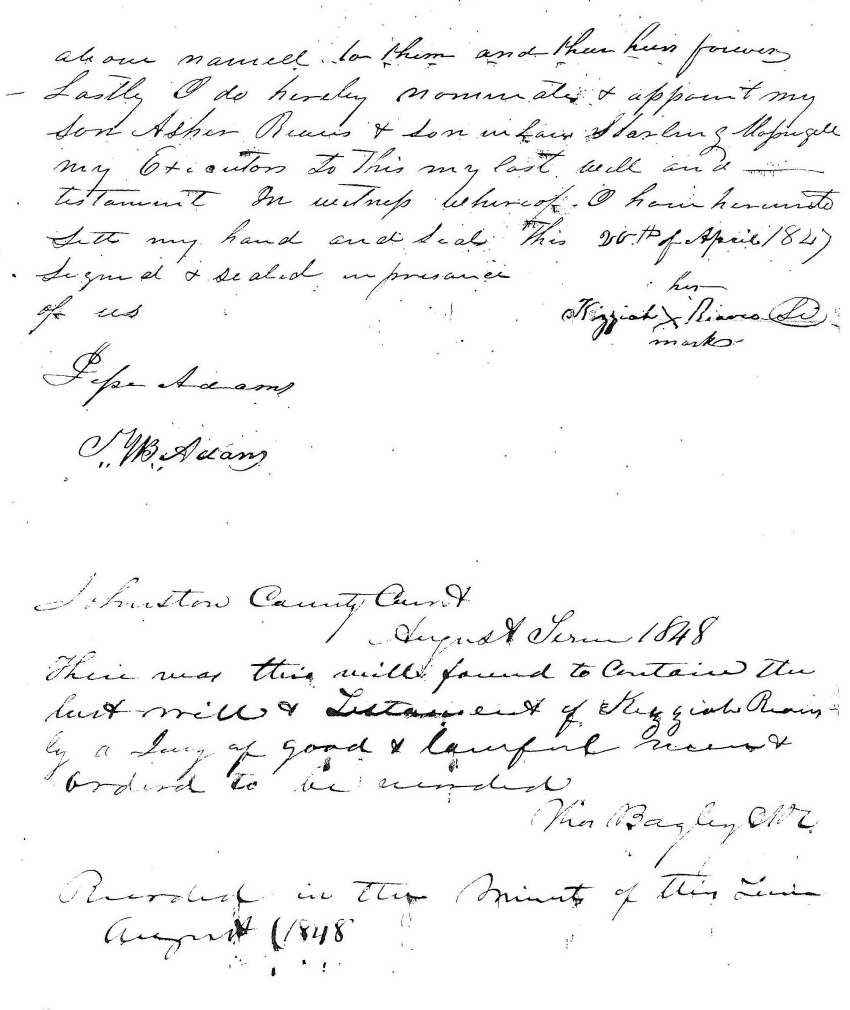 above named to them and their heirs forever
Lastly I do hereby nominate & appoint my
Son Asher Reaves & Son in law Starling
my Executors to This my last will and
testament In witness whereof I have hereunto
Sett my hand and Seal This 20th of April 1847
Signed & sealed in presance
of us
her
Kizziah X Reaves
mark
Jesse Adams
J. B. Adams
Johnston County Court
August Term 1848
Then was this will found to Contain the
last will & Testament of Kezziah Reaves
by a Jury of good & lawful men &
ordered to be recorded
Thos Bagley Clk
Recorded in the Minuts of this Term
August 1848